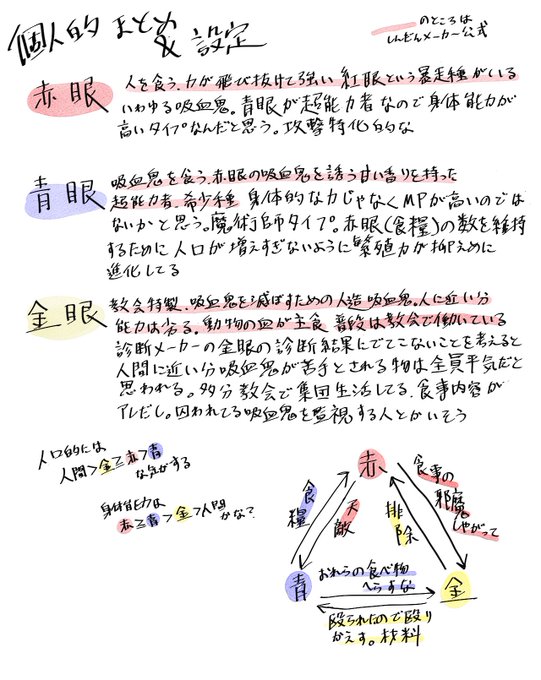 個人的まとめ
& 設定
のところは
しんだんメーカー公式
赤眼
人を食う、力が飛び抜けて強い 紅眼という暴走種がいる
いわゆる吸血鬼。青眼が超能力者なので身体能力が
高いタイプなんだと思う。攻撃特化的な
青眼
吸血鬼を食う、赤眼の吸血鬼を誘う甘い香りを持った
超能力者、希少種 身体的な力じゃなくMPが高いのでは
ないかと思う。魔術師タイプ。赤眼(食糧)の数を維持
するために人口が増えすぎないように繁殖力が抑えめに
進化してる
金眼
教会特製、吸血鬼を滅ぼすための人造吸血鬼。人に近い分
能力は劣る。動物の血が主食 普段は教会で働いている
診断メーカーの金眼の診断結果にでてこないことを考えると
人間に近い分吸血鬼が苦手とされる物は全員平気だと
思われる。多分教会で集団生活してる、食事内容が
アレだし。囚われてる吸血鬼を監視する人とかいそう
人口的には
人間>金≧赤>青
な気がする
身体能力は
赤≧青>金>人間
かな?
赤
食糧
天敵
排除
食事の
邪魔
しやがって
青
おれらの食べ物
へらすな
金
殴られたので殴り
かえす。材料